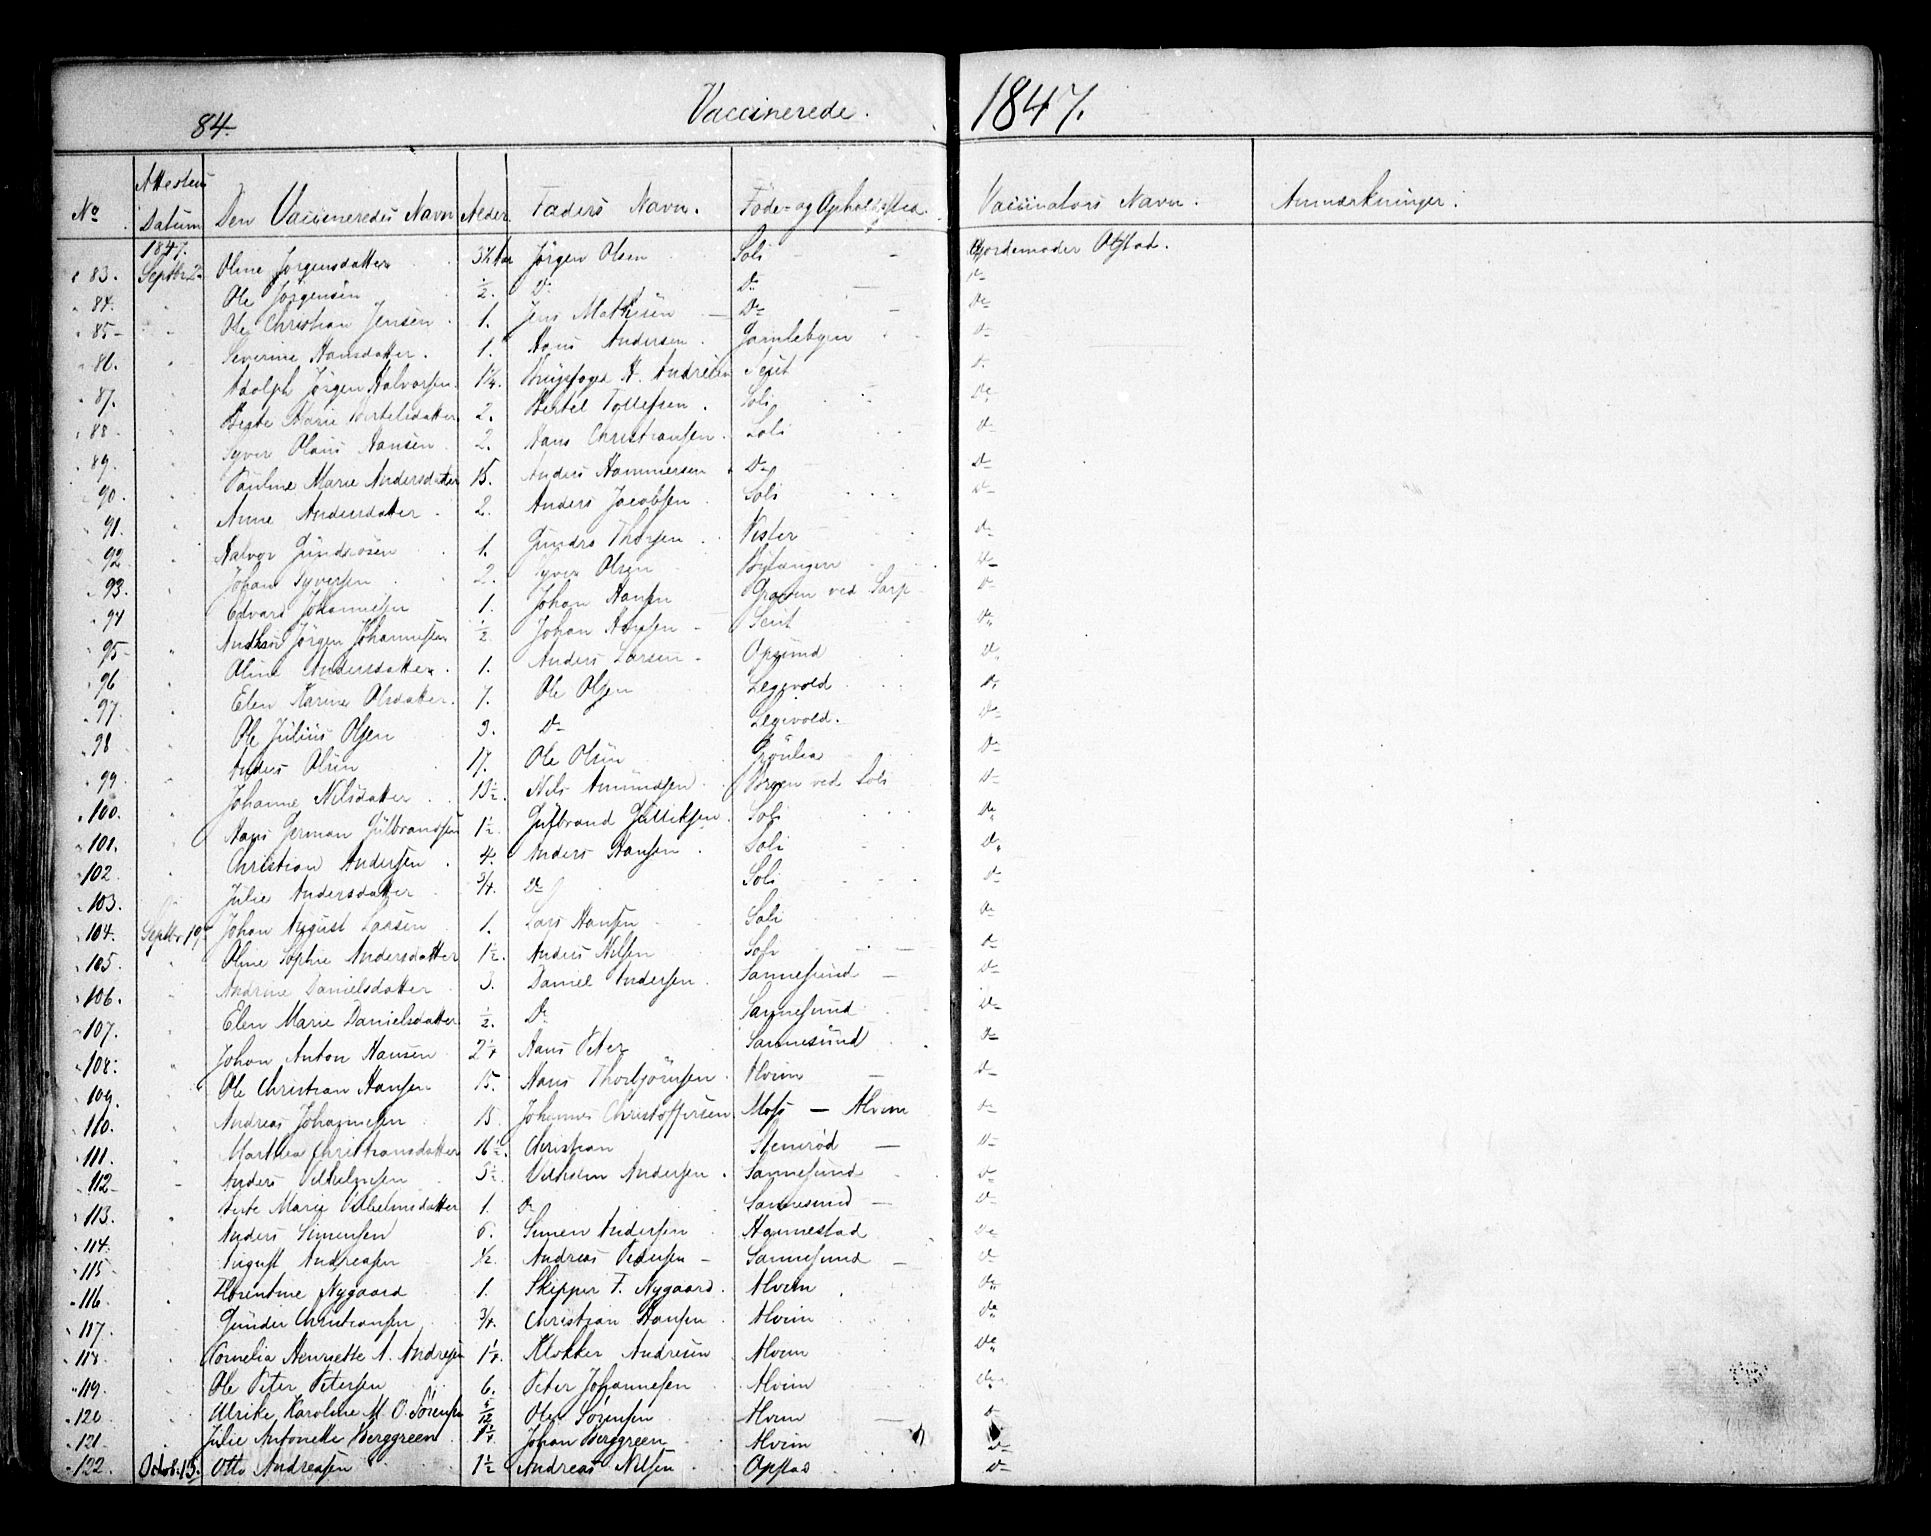 84.
Vaccinerede.
1847.
No
Attestens Datum
Den Vaccineredes Navn
Alder
Faders Navn.
Føde- og Opholdssted.
Vaccinators Navn.
Anmærkninger.
1847.
83. Septbr. Oline Jørgensdatter 3½ Jørgen Olsen Soli Gjordemoder
84. " Ole Jørgensen ½ Do Do Do
85 " Ole Christian Jensen 1. Jens Mathisen Do Do
86. " Severine Hansdatter. 1. Hans Andersen. Gamlebyen Do
87. " Adolph Jørgen Halvorsen. 1¼ H. Andresen Do
88 " Marie Bertelsdatter 2. Bertel Tollefsen. Soli Do
89. " Syver Olaus Hansen 2. Hans Christiansen. Soli Do
90. " Pauline Marie Andersdatter 15. Anders Hammersen Do Do
91. " Anne Andersdatter 2. Anders Jacobsen Soli Do
92 " Halvor Gundersen 1. Gunder Thorsen Vister Do
93. " Johan Syversen 2. Syver Olsen Do
94 " Edvard Johannesen 1. Johan Hansen ved Sarp Do
95 " Jørgen Johannesen ½ Johan Hansen Do
96 " Oline Andersdatter. 1. Anders Larsen Opsund Do
97. " Elen Karine Olsdatter. 7. Ole Olsen Do
98 " Ole Julius Olsen 3. Do Do
99 " Anders Olsen 17. Ole Olsen Do
100. " Johanne Nilsdatter 13½. Nils Amundsen Borgen ved Soli Do
101. " Hans Herman Gulbrandsen 1½ Gulbrand Gulliksen. Soli Do
102 " Christian Andersen 4. Anders Hansen Soli Do
103. " Julie Andersdatter ¾ Do Soli Do
104. Septbr. 19. Johan August Larsen 1. Lars Hansen Soli Do
105. " Oline Sophie Andersdatter 1½. Anders Nilsen Soli Do
106. " Andrine Danielsdatter 3. Daniel Andersen. Sannesund Do
107. " Elen Marie Danielsdatter ½ Do Sannesund Do
108. " Johan Anton Hansen 2¼ Hans Peter Sannesund Do
109. " Ole Christian Hansen 15. Hans Thorbjørnsen. Alvim Do
110. " Andreas Johannesen 15. Johannes Christoffersen. Moss — Alvim Do
111. " Marthea Christiansdatter 16½. Christian Stenrød Do
112 " Anders Vilhelmsen Vilhelm Andersen. Sannesund Do
113. " Marie Vilhelmsdatter 1. Do Sannesund Do
114. Anders Simensen 6. Simen Andersen Hannestad Do
115 August Andreasen ½ Andreas Pedersen Sannesund Do
116. " Florentine Nygaard 1. Skipper F. Nygaard. Alvim Do
117. Gunder Christiansen ¾ Christian Hansen Alvim Do
118. " Cornelia Henriette A. Andresen 1¼ Klokker Andresen Alvim Do
119. " Ole Peter Petersen 6. Peter Johannesen Alvim Do
120 " Ulrikke Karoline M. O. Sørensen Ole Sørensen Alvim Do
121. " Julie Antonette Berggreen 1¼ Johan Berggreen Alvim Do
122. Octob. 15. Otto Andreasen 1½ Andreas Nilsen Opstad Do